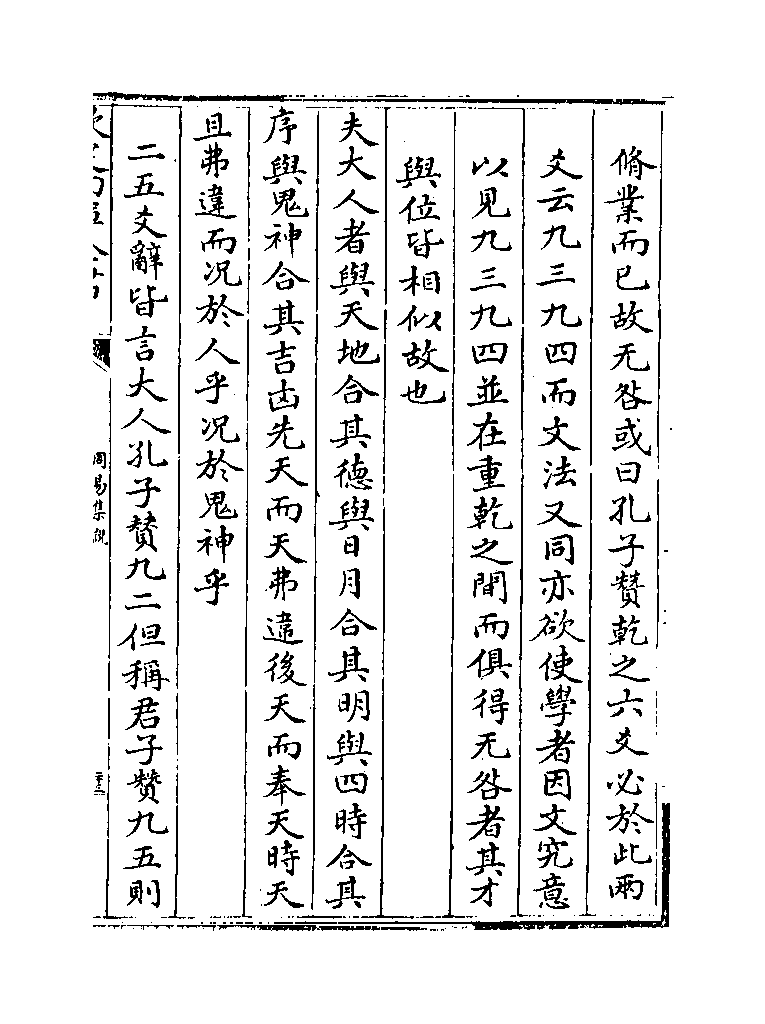 脩業而已故无咎或曰孔子贊乾之六爻必於此兩
爻云九三九四而文法又同亦欲使學者因文究意
以見九三九四並在重乾之間而俱得无咎者其才
與位皆相似故也
夫大人者與天地合其德與日月合其明與四時合其
序與鬼神合其吉凶先天而天弗違後天而奉天時天
且弗違而况於人乎况於鬼神乎
二五爻辭皆言大人孔子贊九二但稱君子贊九五則
周易集說